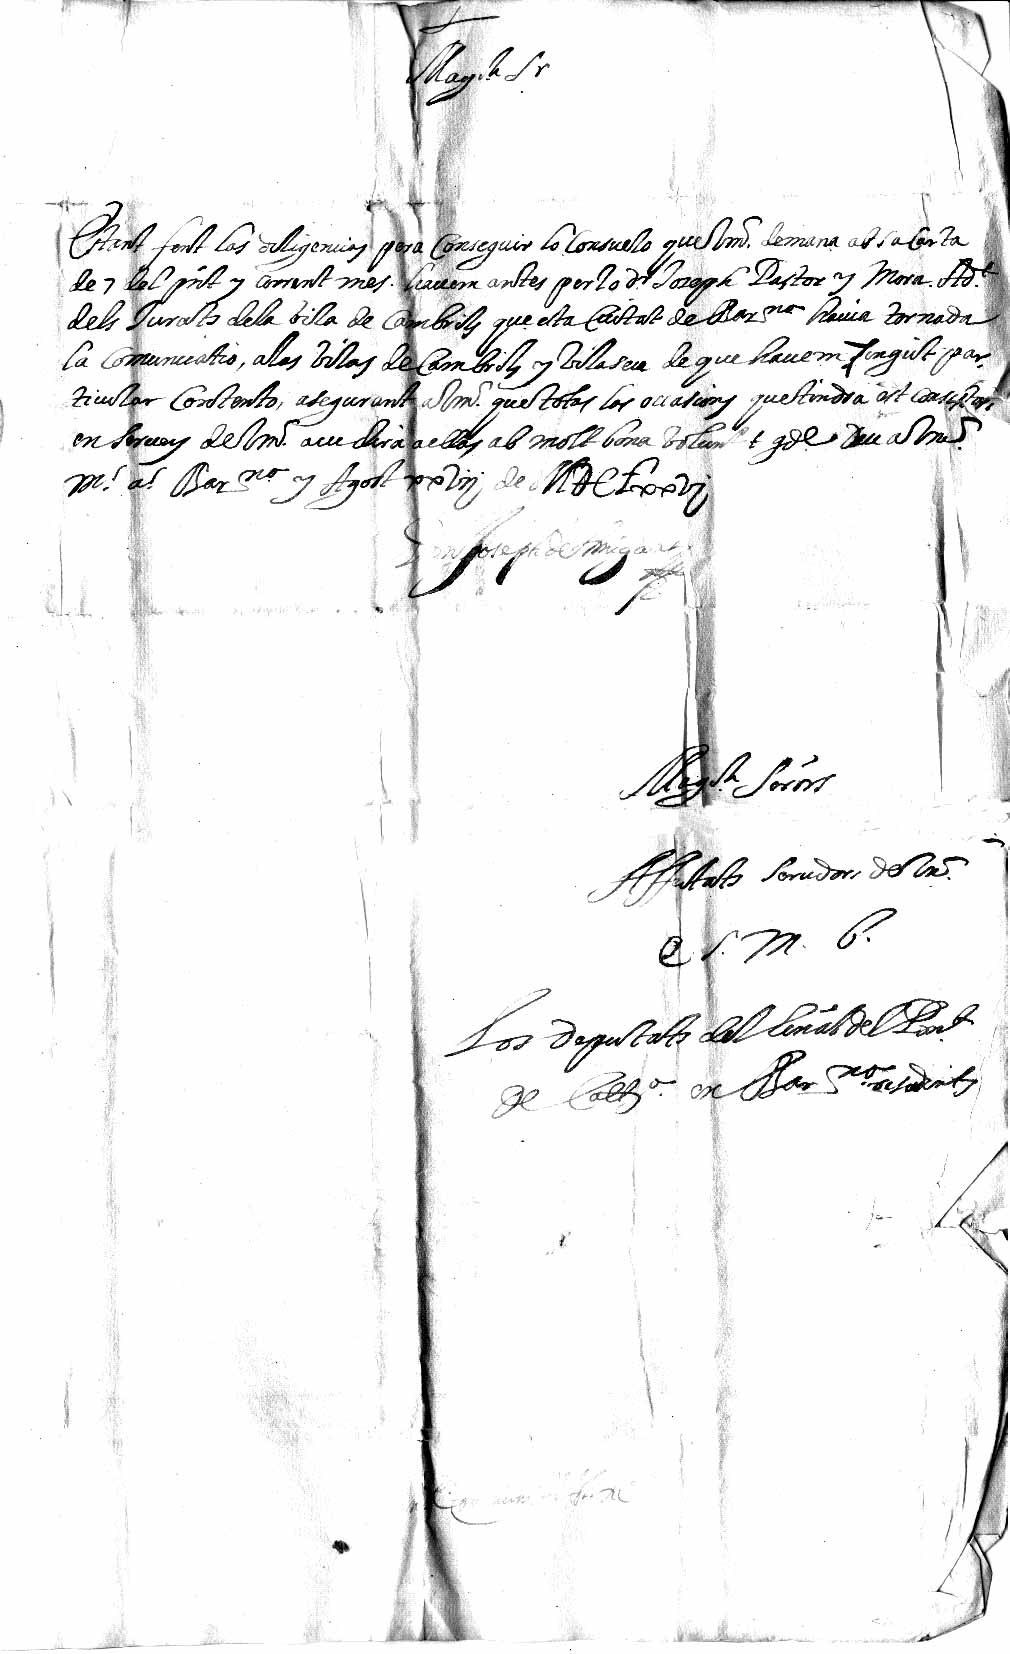 Magch Sr
Estant fent las diligencias pera Conseguir lo Consuelo que Vm. demana ab sa Carta
de 7 del pnt y corrent mes. havem antes per lo dr Joseph Pastor y Mora. Adt
dels Jurats dela Vila de Cambrils que esta Ciutat de Barna havia tornada
la Comunicatio, a las Vilas de Cambrils y Vilaseca de que havem tingut par-
ticular Contento, asegurant a Vm. que totas las ocasions que tindra est Consistori
en servey de Vm. acudira a ellas ab molt bona Volunt t gde Deu a Vms
ms as Barna y Agost xxVij de MDCLxxVj
Don Joseph de
Magch Senors
Affectats servidors de Vms.
Q S. M. B.
Los Deputats del Genal del Pnt
de Cathª en Barna residents